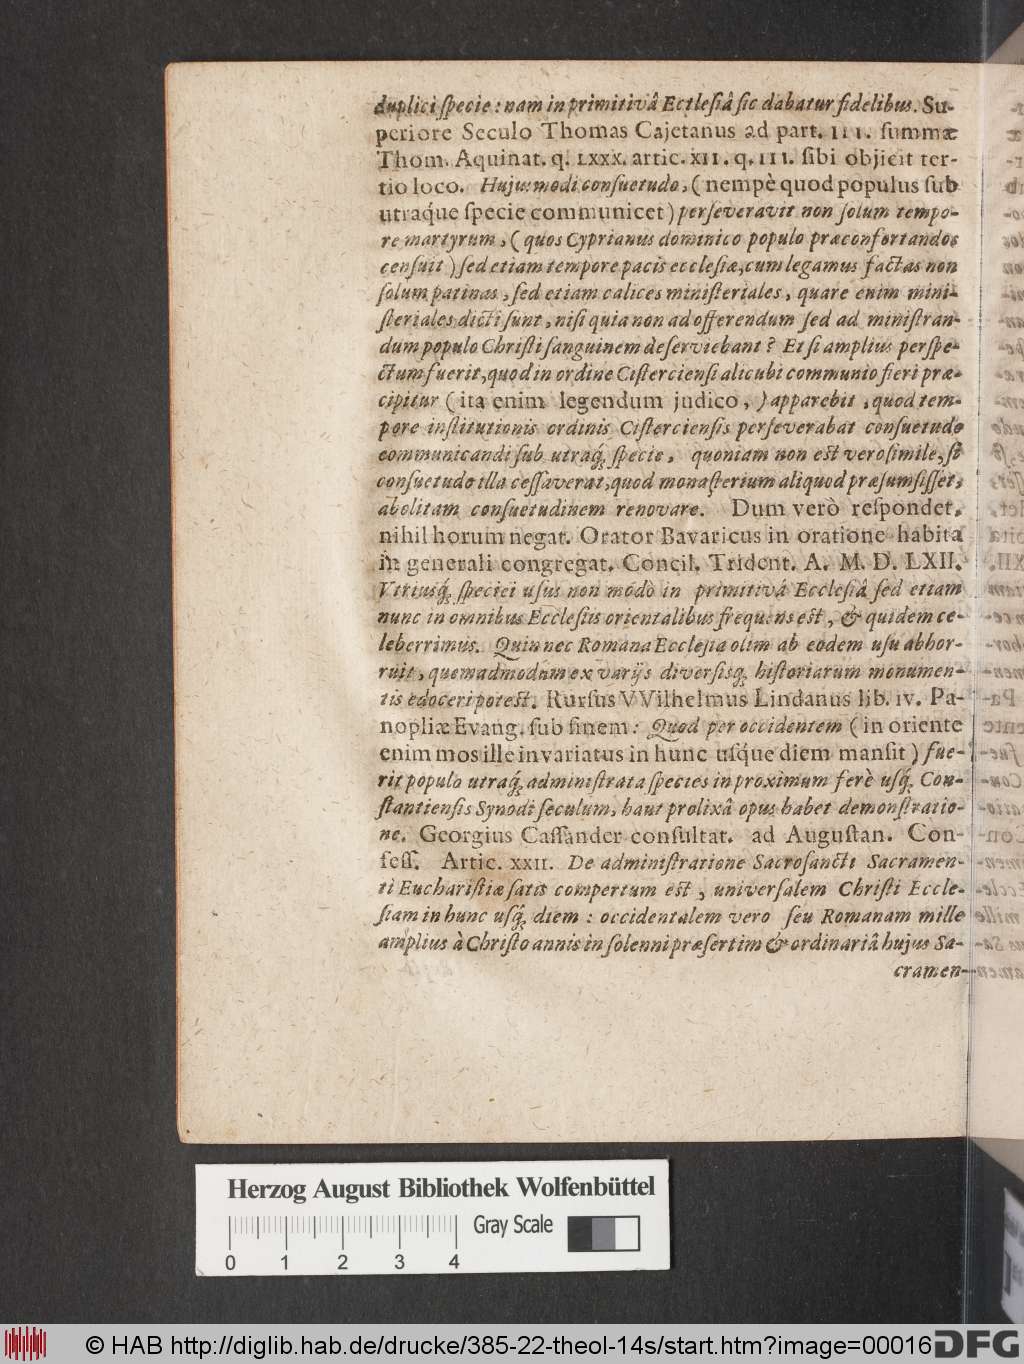 duplici ſpecie: nam in primitivâ Eccleſiâ ſic dabatur fidelibus. Su-
periore Seculo Thomas Cajetanus ad part. III. ſummæ
Thom. Aquinat. q. LXXX. artic. XII. q. III. ſibi objicit ter-
tio loco. Hujuſmodi conſuetudo, (nempè quod populus ſub
utraq́ue ſpecie communicet) perſeveravit non ſolum tempo-
re martyrum, (quos Cyprianus dominico populo præconfortandos
cenſuit) ſed etiam tempore pacis eccleſiæ, cum legamus factas non
ſolum patinas, ſed etiam calices miniſteriales, quare enim mini-
ſteriales dicti ſunt, niſi quia non ad offerendum ſed ad miniſtran-
dum populo Chriſti ſanguinem deſerviebant? Et ſi amplius perſpe-
ctum fuerit, quod in ordine Ciſtercienſi alicubi communio fieri præ-
cipitur (ita enim legendum judico,) apparebit, quod tem-
pore inſtitutionis ordinis Ciſtercienſis perſeverabat conſuetudo
communicandi ſub utraq́; ſpecie, quoniam non eſt veroſimile, ſi
conſuetudo illa ceſſaverat, quod monaſterium aliquod præſumſiſſet,
abolitam conſuetudinem renovare. Dum verò reſpondet,
nihil horum negat. Orator Bavaricus in oratione habita
in generali congregat. Concil. Trident. A. M. D. LXII.
Vtriuſq́; ſpeciei uſus non modò in primitivá Eccleſiâ ſed etiam
nunc in omnibus Eccleſiis orientalibus frequens eſt, & quidem ce-
leberrimus. Quin nec Romana Eccleſia olim ab eodem uſu abhor-
ruit, quemadmodum ex varijs diverſisq́; hiſtoriarum monumen-
tis edoceri poteſt. Rurſus VVilhelmus Lindanus lib. IV. Pa-
nopliæ Evang. ſub finem: Quod per occidentem (in oriente
enim mos ille invariatus in hunc uſq́ue diem manſit) fue-
rit populo utraq́; adminiſtrata ſpecies in proximum ferè uſq́; Con-
ſtantienſis Synodi ſeculum, haut prolixâ opus habet demonſtratio-
ne. Georgius Caſſander conſultat. ad Auguſtan. Con-
feſſ. Artic. XXII. De adminiſtratione Sacroſancti Sacramen-
ti Euchariſtiæ ſatis compertum eſt, univerſalem Chriſti Eccle-
ſiam in hunc uſq́; diem: occidentalem vero ſeu Romanam mille
amplius à Chriſto annis in ſolenni præſertim & ordinariâ hujus Sa-
cramen-
Herzog August Bibliothek Wolfenbüttel
Gray Scale
0 1 2 3 4
© HAB http://diglib.hab.de/drucke/385-22-theol-14s/start.htm?image=00016
DFG